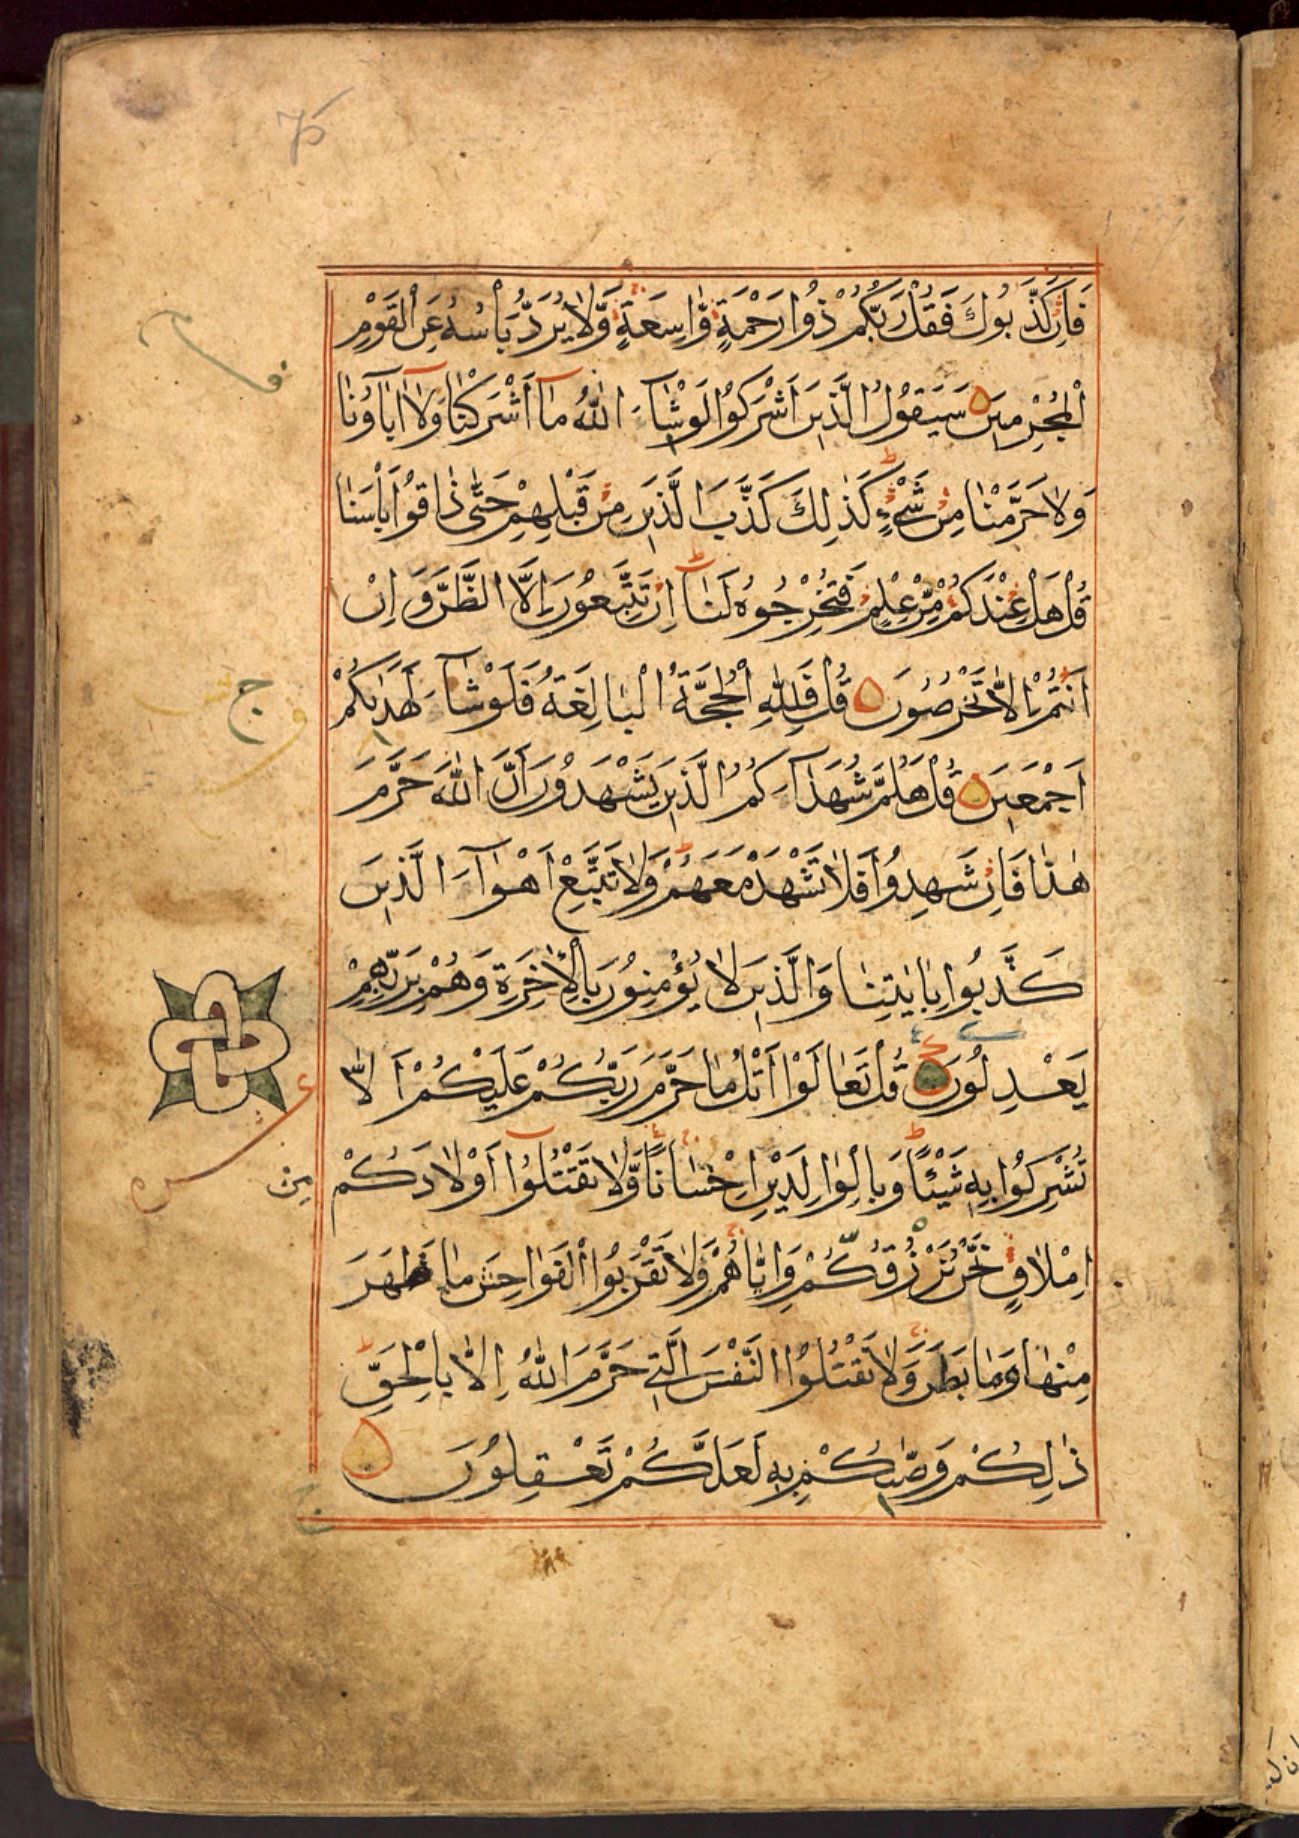 75
فَاِنْ كَذَّبُوكَ فَقُلْ رَبُّكُمْ ذُوا رَحْمَةٍ وَّاسِعَةٍ وَّلَا يُرَدُّ بَأْسُهُ عَنِ الْقَوْمِ
الْمُجْرِمِينَ سَيَقُوْلُ الَّذِينَ اَشْرَكُوْا لَوْ شَآءَ اللّٰهُ مَآ اَشْرَكْنَا وَلَآ اٰبَآؤُنَا
وَلَا حَرَّمْنَا مِنْ شَيْءٍ كَذٰلِكَ كَذَّبَ الَّذِينَ مِنْ قَبْلِهِمْ حَتّٰى ذَاقُوْا بَأْسَنَا
قُلْ هَلْ عِنْدَكُمْ مِّنْ عِلْمٍ فَتُخْرِجُوهُ لَنَآ اِنْ تَتَّبِعُوْنَ اِلَّا الظَّنَّ وَاِنْ
اَنْتُمْ اِلَّا تَخْرُصُوْنَ قُلْ فَلِلّٰهِ الْحُجَّةُ الْبَالِغَةُ فَلَوْ شَآءَ لَهَدٰىكُمْ
اَجْمَعِينَ قُلْ هَلُمَّ شُهَدَآءَكُمُ الَّذِينَ يَشْهَدُوْنَ اَنَّ اللّٰهَ حَرَّمَ
هٰذَا فَاِنْ شَهِدُوْا فَلَا تَشْهَدْ مَعَهُمْ وَلَا تَتَّبِعْ اَهْوَآءَ الَّذِينَ
كَذَّبُوا بِاٰيٰتِنَا وَالَّذِينَ لَا يُؤْمِنُوْنَ بِالْاٰخِرَةِ وَهُمْ بِرَبِّهِمْ
يَعْدِلُوْنَ قُلْ تَعَالَوْا اَتْلُ مَا حَرَّمَ رَبُّكُمْ عَلَيْكُمْ اَلَّا
تُشْرِكُوْا بِهٖ شَيْئًا وَبِالْوَالِدَيْنِ اِحْسَانًا وَّلَا تَقْتُلُوْٓا اَوْلَادَكُمْ مِنْ
اِمْلَاقٍ نَحْنُ نَرْزُقُكُمْ وَاِيَّاهُمْ وَلَا تَقْرَبُوا الْفَوَاحِشَ مَا ظَهَرَ
مِنْهَا وَمَا بَطَنَ وَلَا تَقْتُلُوْا النَّفْسَ الَّتِي حَرَّمَ اللّٰهُ اِلَّا بِالْحَقِّ
ذٰلِكُمْ وَصّٰىكُمْ بِهٖ لَعَلَّكُمْ تَعْقِلُوْنَ